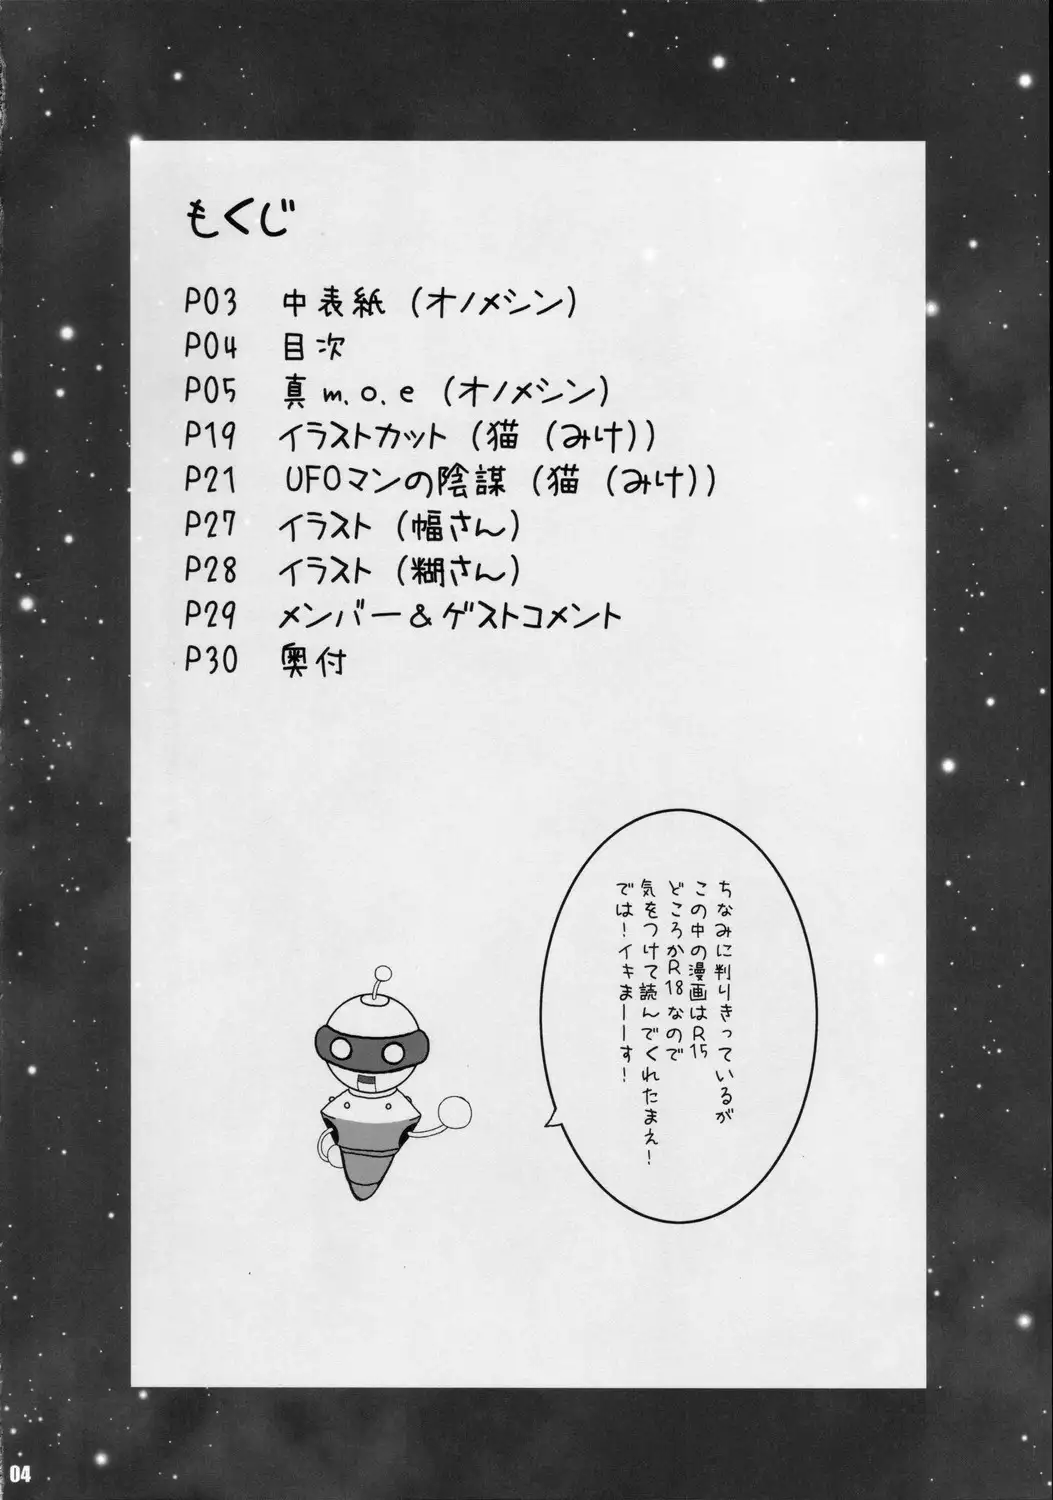 もくじ
P03 中表紙（オノメシン）
P04 目次
P05 真m.o.e（オノメシン）
P19 イラストカット（猫（みけ））
P21 UFOマンの陰謀（猫（みけ））
P27 イラスト（幅さん）
P28 イラスト（糊さん）
P29 メンバー＆ゲストコメント
P30 奥付
ちなみに判りきっているが
この中の漫画はR15
どころかR18なので
気をつけて読んでくれたまえ！
では！イキまーーす！
04